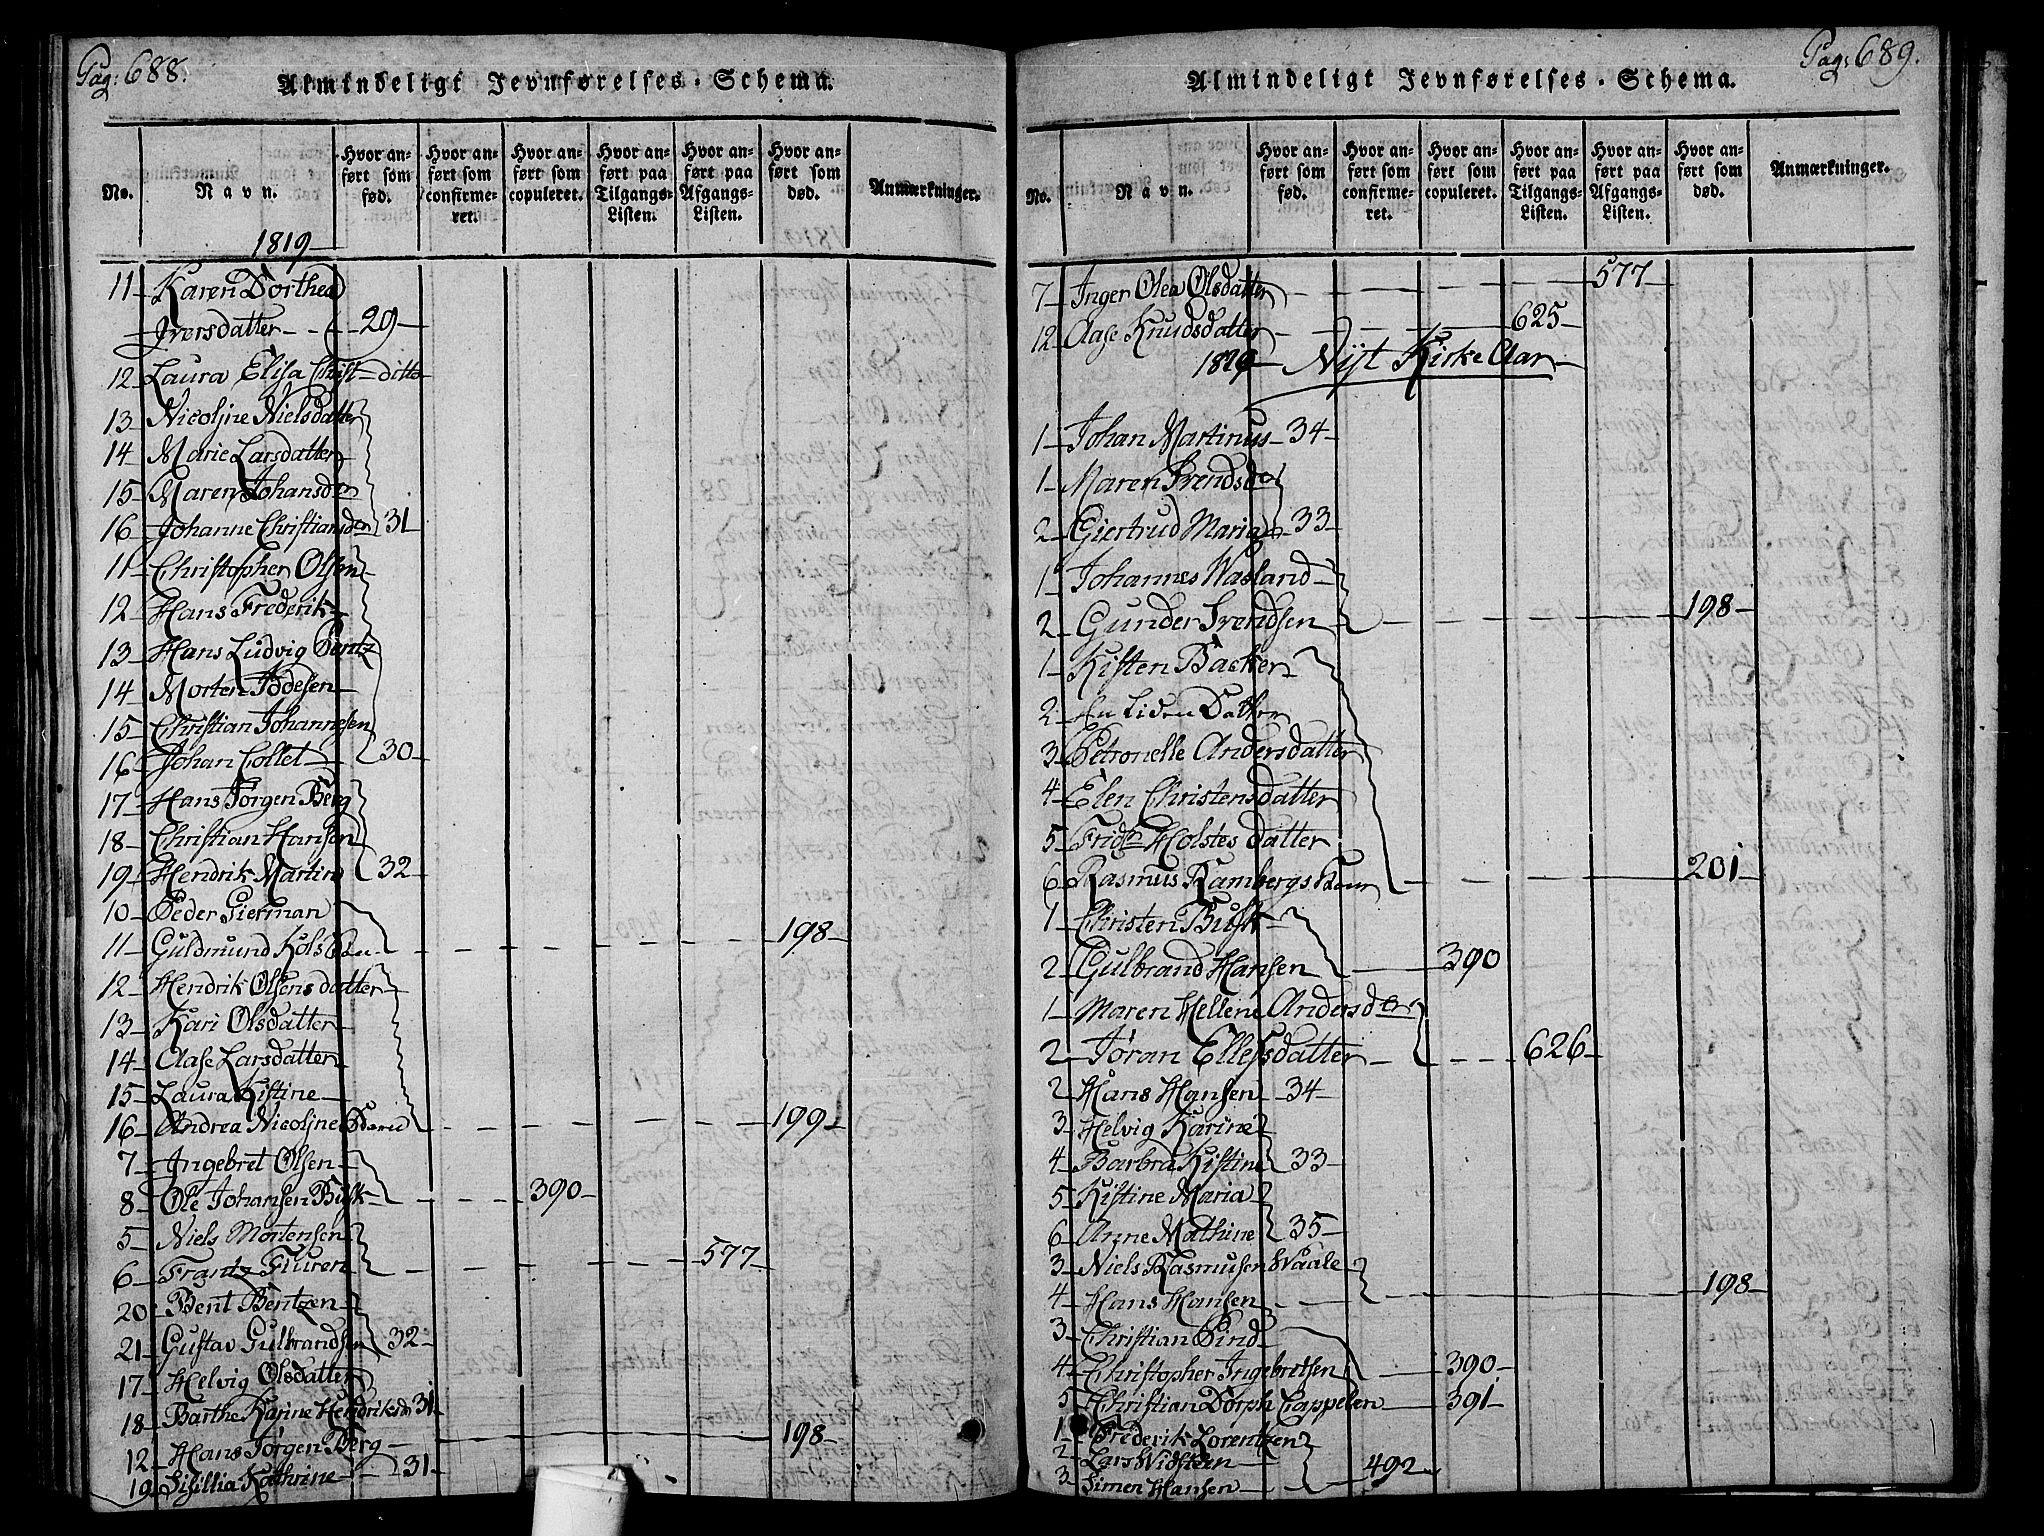 Pag: 688.
Almindeligt Jevnførelses-Schema.
No.
Navn.
Hvor anført som fød.
Hvor anført som confirmeret.
Hvor anført som copuleret.
Hvor anført paa Tilgangs-Listen.
Hvor anført paa Afgangs-Listen.
Hvor anført som død.
Anmærkninger.
1819
11 Karen Dorthea
Iversdatter 29
12 Laura Elisa Christ ditto
13 Nicoljne Nielsdatter
14 Marie Larsdatter
15 Maren Johansdr
16 Johanne Christiansdr 31
11 Christopher Olsen
12 Hans Frederik
13 Hans Ludvig
14 Morten
15 Christian Johannesen
16 Johan Collet 30
17 Hans Jørgen Berg
18 Christian Hansen
19 Hendrik Martin 32
10 Peder
11 Guldmund 198
12 Hendrik Olsens datter
13 Kari Olsdatter
14 Aase Larsdatter
15 Laura Kistine
16 Andrea Nicoljne 199
7 Ingebret Olsen
8 Ole Johansen Busk 390
5 Niels Mortensen
6 Frantz 577
20 Bent Bentzen
21 Gustav Gulbrandsen 32
17 Helvig Olsdatter
18 Barthe Karine Hendriksdr 31
12 Hans Jørgen Berg 198
19 Sisillia Kathrine 31
Pag: 689.
Almindeligt Jevnførelses-Schema.
No.
Navn.
Hvor anført som fød.
Hvor anført som confirmeret.
Hvor anført som copuleret.
Hvor anført paa Tilgangs-Listen.
Hvor anført paa Afgangs-Listen.
Hvor anført som død.
Anmærkninger.
7 Inger Olea Olsdatter 577
12 Aase Knudsdatter 625
Nyt Kirke Aar
1 Johan Martinus 34
1 Maren Svendsdr
2 Giertrud Maria 33
1 Johannes
2 Gunder Svendsen 198
1 Kisten Backer
2 En Liden Datter
3 Petronelle Andersdatter
4 Elen Christensdatter
5 Holstes datter
6 Rasmus Rambergs 201
1 Christen Busk
2 Gulbrand Hansen 390
1 Maren Hellene Andersdtr
2 Jøran Ellefsdatter 626
2 Hans Hansen 34
3 Helvig Karine
4 Barbra Kistine 33
5 Kistine Maria
6 Anne Mathine 35
3 Niels Rasmusen Waale
4 Hans Hansen 198
3 Christian Lind
4 Christopher Ingebretsen 390
5 Christian Dorph Cappelen 391
1 Frederik Lorentzen
2 Lars
3 Simen Hansen 492